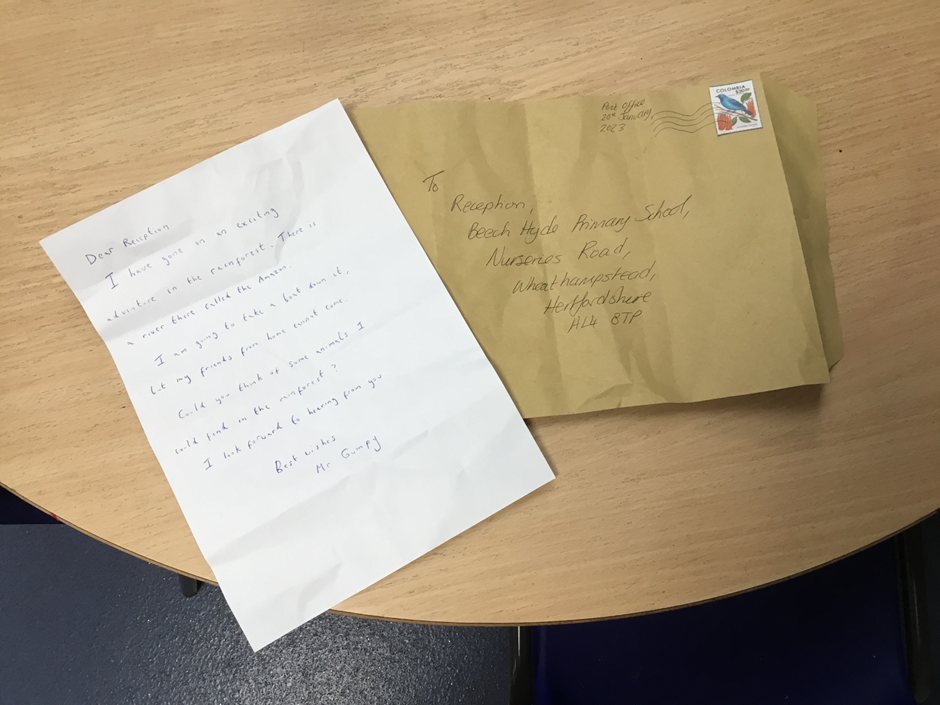 Dear Reception
I have gone on an exciting
adventure in the rainforest. There is
a river there called the Amazon.
I am going to take a boat down it,
but my friends from home cannot come.
Could you think of some animals I
could find in the rainforest?
I look forward to hearing from you
Best wishes
Mr Gumpy
Post Office
20th January,
2023
COLOMBIA
To
Reception,
Beech Hyde Primary School,
Nurseries Road,
Wheathampstead,
Hertfordshire
AL4 8TP